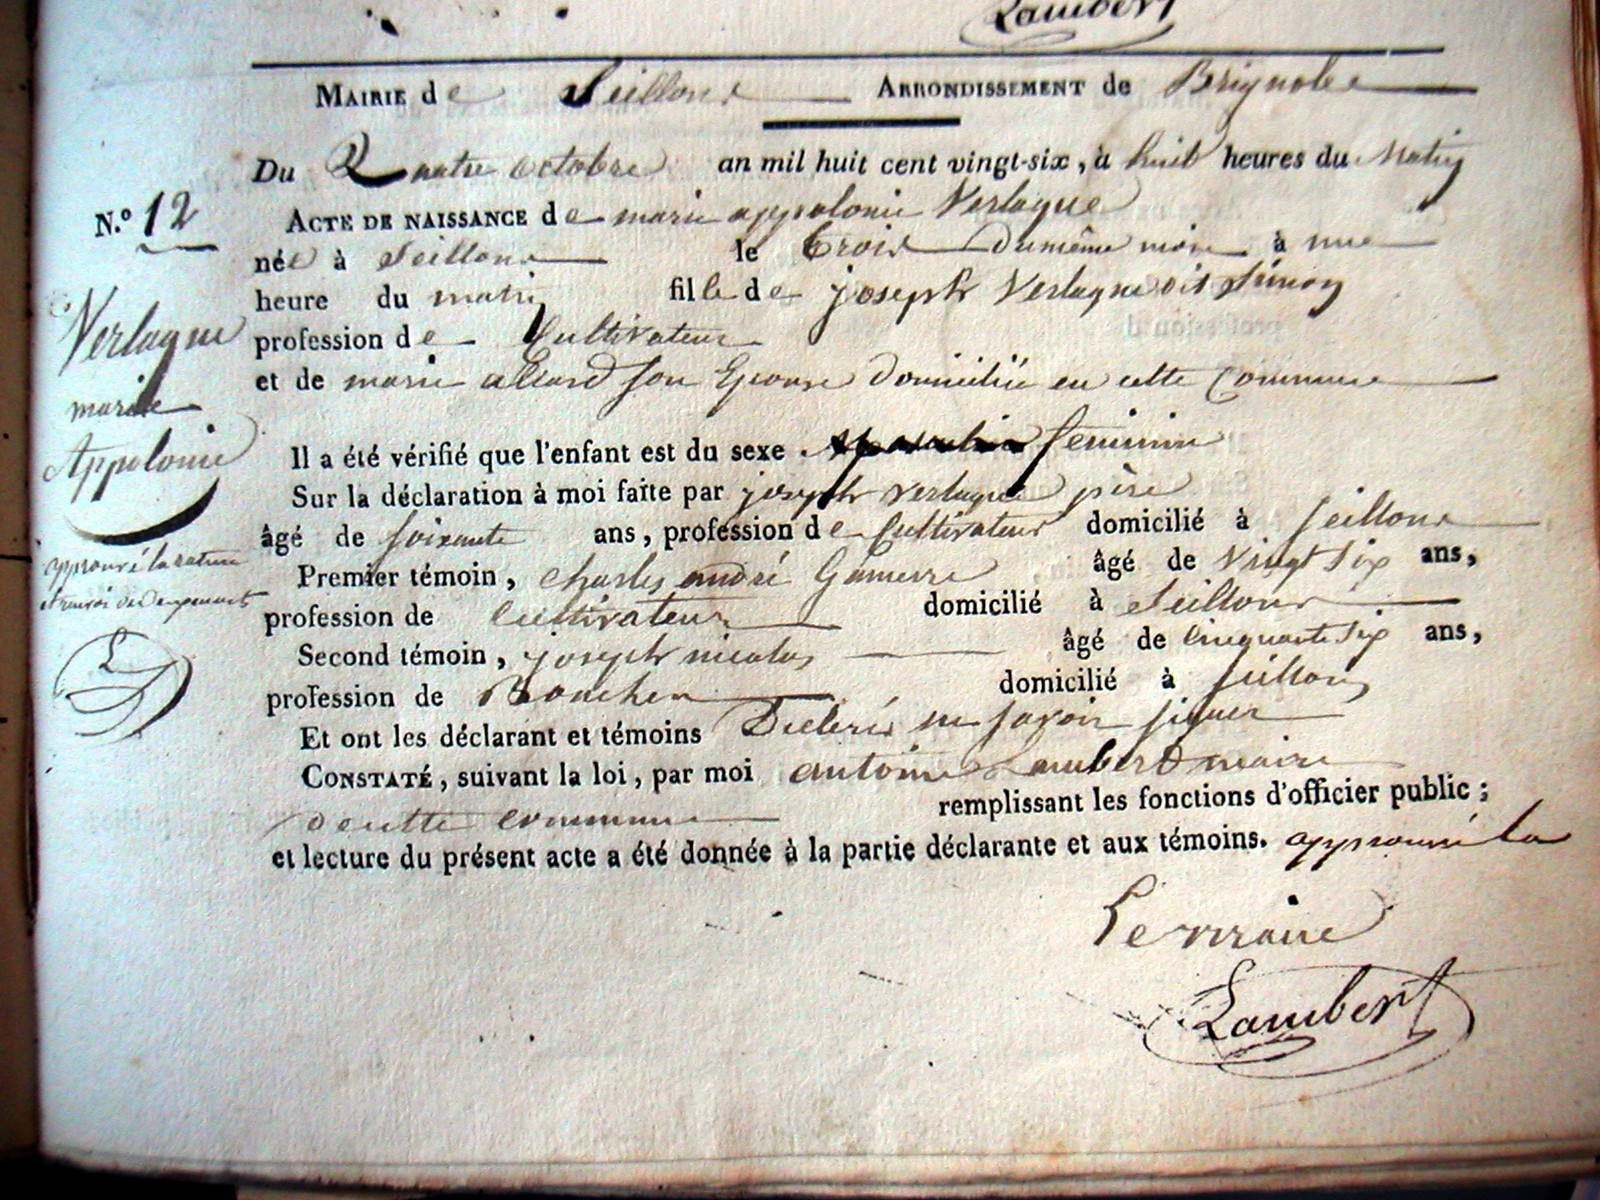 Lambert
Mairie de Seillons Arrondissement de Brignoles
Du Quatre octobre an mil huit cent vingt-six, à huit heures du Matin
N.º 12
Acte de naissance de marie appolonie Verlaque
née à Seillons le trois du même mois à une
heure du matin fille de joseph Verlaque dit
profession de Cultivateur
et de marie allard son Epouse domiciliée en cette Commune
Verlaque
marie
Appolonie
Il a été vérifié que l'enfant est du sexe masculin feminin
Sur la déclaration à moi faite par joseph verlaque père
âgé de soixante ans, profession de Cultivateur domicilié à Seillons
approuvé la rature
Premier témoin, charles andré âgé de vingt six ans,
profession de Cultivateur domicilié à Seillons
Second témoin, joseph nicolas âgé de cinquante six ans,
profession de domicilié à Seillons
Et ont les déclarant et témoins Déclaré ne savoir signer
Constaté, suivant la loi, par moi antoine Lambert maire
de cette commune remplissant les fonctions d'officier public;
et lecture du présent acte a été donnée à la partie déclarante et aux témoins. approuvé la
Le maire
Lambert